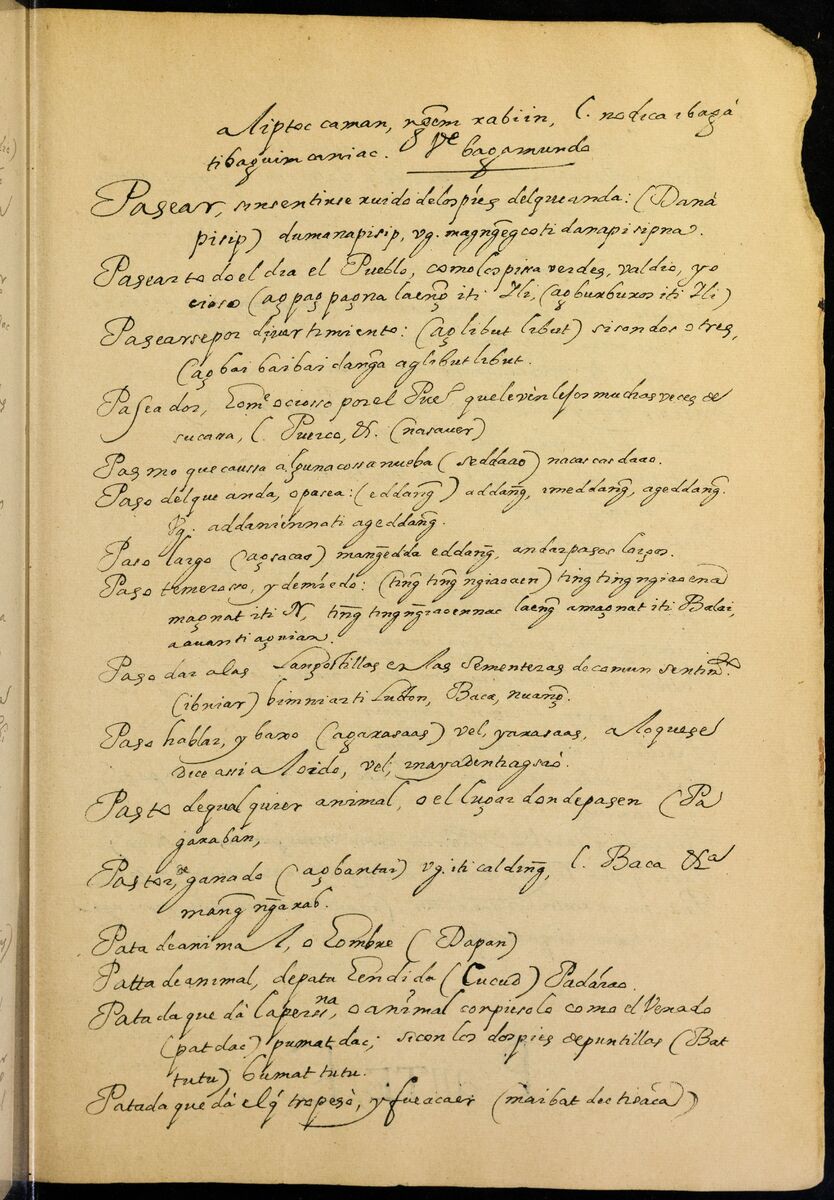 aliptoc caman, ngem rabiin, l. nodica ibagá
tibaguim caniac. Ve bagamundo
Pasear, sinsentirse ruido delospies delqueanda: (Daná
pisip) dumanapisip, vg. magngegcoti danapisipna.
Pasear todo el dia el Pueblo, comolospira verdes, valdio, y o
cioso (ag pag pagna laeng iti Ili, (agburburos iti Ili)
Pasearsepor divertimiento: (ag libut libut) sisondos o tres,
(ag bai baibai danga aglibutlibut.
Paseador, hombe ociosso por el Pueo quelevinlejos muchas veces de
sucasa, l. Puerco, &. (nasauer)
Pasmo que caussa alguna cossa nueba (seddaao) nacascasdaao.
Paso delque anda, o pasea: (eddang) addang, imeddang, ageddang.
Vg. addaniennati ageddang.
Paso largo (agsacao) mangedda eddang, andar pasos largos.
Paso temerosso, y demiedo: (ting ting ngiaoaen) ting ting ngiaoena
magnat iti N, ting ting ngiaoennac laeng amagnat iti Balai,
aauanti agnian.
Paso dar alas Langostillas en las sementeras de comun sentinte.
(ibniar) bimniarti Ludon, Baca, nuang.
Paso hablar, y baxo (agarasaas) vel, yarasaas, aloquese
dice assi aloido, vel, mayadentiagsaó.
Pasto dequalquier animal, o el lugar dondepasen (Pa
garaban,
Pastor, de ganado (agbantai) vg. iti calding, l. Baca &a
mang ngarab.
Pata deanimal, o hombre (Dapan)
Patta deanimal, depata hendida (Cucud) Padárao.
Patada que dá lapersona, o animal conpiesolo como el Venado
(patdac) pumatdac; sicon los dospies depuntillas (Bat
tutu) bumattutu.
Patada que dá elq̃ tropesó, y fueacaer (maibat dec tisáca)